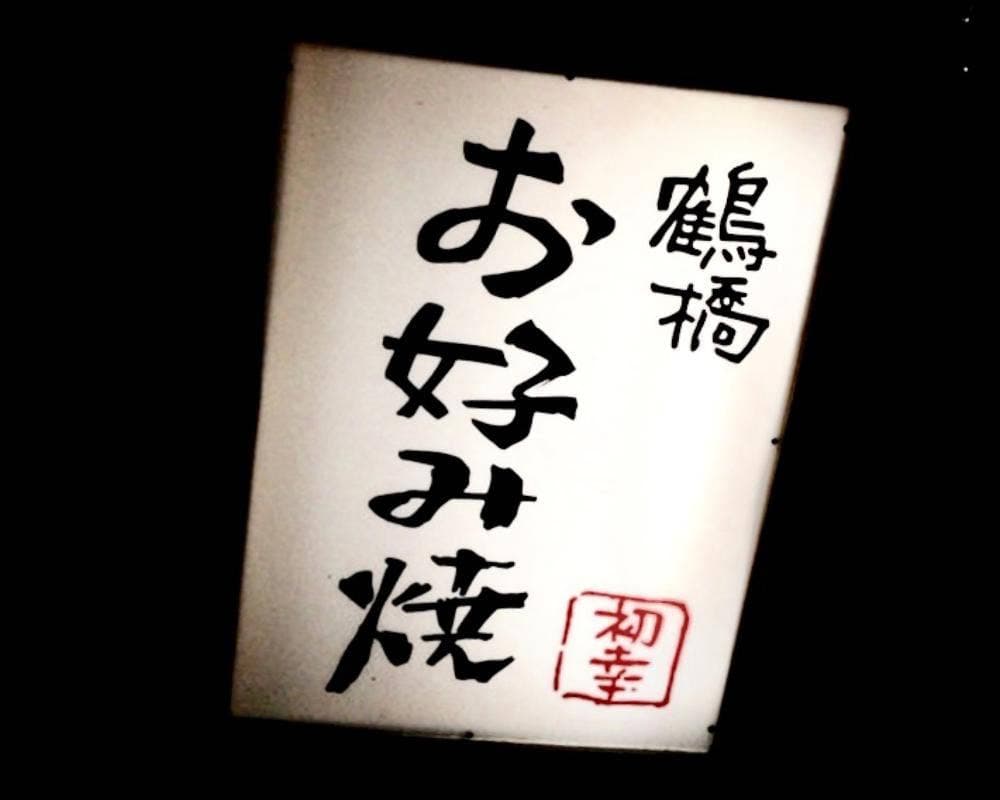 鶴橋
お好み焼
初幸